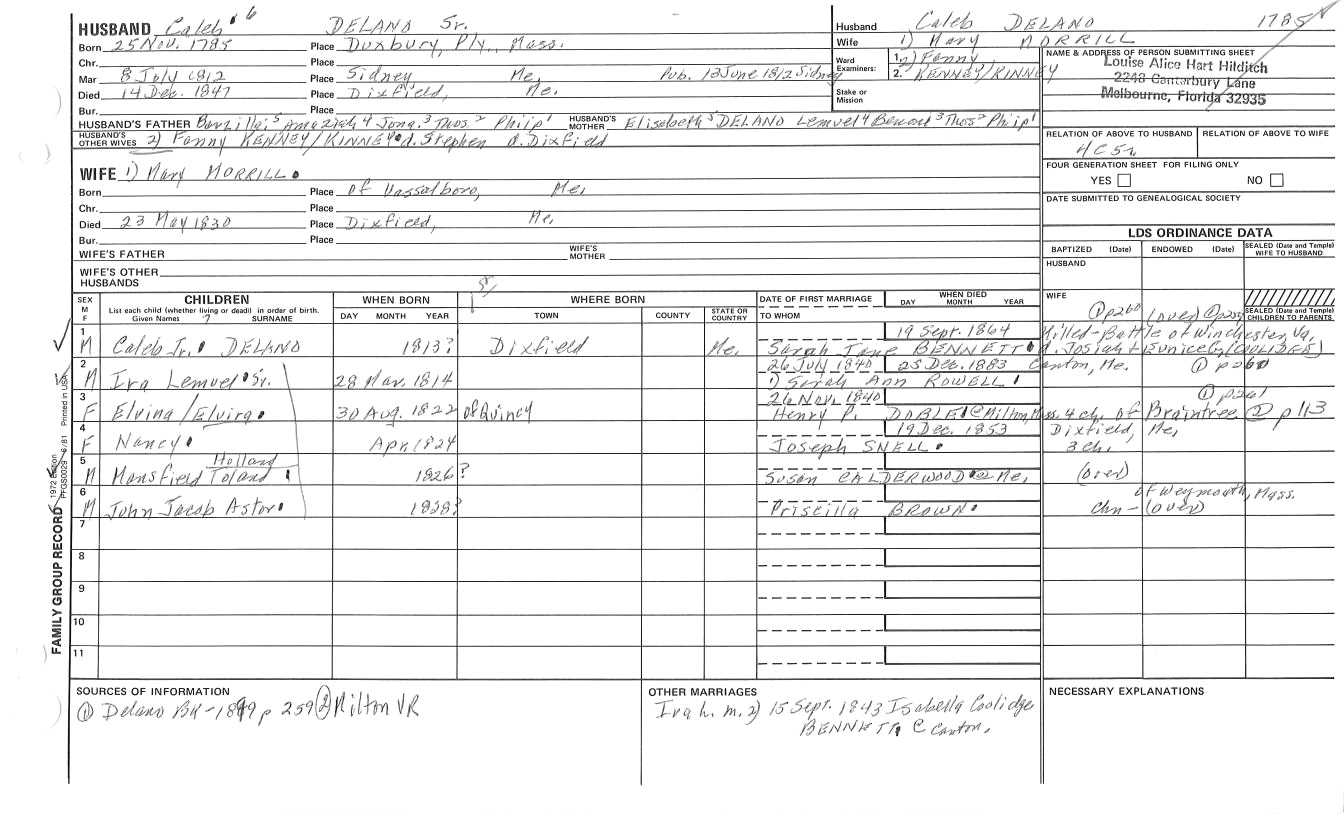 HUSBAND Caleb 6 DELANO Sr.
Born 25 Nov. 1785 Place Duxbury, Ply., Mass.
Chr. Place
Mar 8 July 1812 Place Sidney Me. Pub. 13 June 1812 Sidney
Died 14 Dec. 1847 Place Dixfield, Me.
Bur. Place
HUSBAND'S FATHER Barzillai 5 Amaziah 4 Jona. 3 Thos. 2 Philip 1 HUSBAND'S MOTHER Elisabeth 5 DELANO Lemuel 4 Benoni 3 Thos 2 Philip 1
HUSBAND'S OTHER WIVES 2) Fanny KENNEY/KINNEY d. Stephen @ Dixfield
WIFE 1) Mary MORRILL
Born Place of Vassalboro, Me.
Chr. Place
Died 23 May 1830 Place Dixfield, Me.
Bur. Place
WIFE'S FATHER WIFE'S MOTHER
WIFE'S OTHER HUSBANDS
Husband Caleb DELANO 1785
Wife 1) Mary MORRILL
Ward Examiners: 1. 2) Fanny
2. KENNEY/KINNEY
Stake or Mission
NAME & ADDRESS OF PERSON SUBMITTING SHEET
Louise Alice Hart Hilditch
2248 Canterbury Lane
Melbourne, Florida 32935
RELATION OF ABOVE TO HUSBAND RELATION OF ABOVE TO WIFE
4C5r
FOUR GENERATION SHEET FOR FILING ONLY
YES NO
DATE SUBMITTED TO GENEALOGICAL SOCIETY
LDS ORDINANCE DATA
BAPTIZED (Date) ENDOWED (Date) SEALED (Date and Temple) WIFE TO HUSBAND
HUSBAND
WIFE
SEALED (Date and Temple) CHILDREN TO PARENTS
SEX M F
CHILDREN
List each child (whether living or dead) in order of birth.
Given Names 7 SURNAME
WHEN BORN
DAY MONTH YEAR
WHERE BORN
TOWN COUNTY STATE OR COUNTRY
DATE OF FIRST MARRIAGE
TO WHOM
WHEN DIED
DAY MONTH YEAR
① p260 (over) @
1 19 Sept. 1864 Killed-Battle of Winchester, Va.
M Caleb Jr. DELANO 1813? Dixfield Me. Sarah Jane BENNETT d. Josiah + Eunice (COOLIDGE)
2 26 July 1840 25 Dec. 1883 Canton, Me. ① p260
M Ira Lemuel Sr. 28 Mar. 1814 1) Sarah Ann ROWELL
3 26 Nov. 1840 ① p261
F Elvina/Elvira 30 Aug. 1822 of Quincy Henry P. DOBLE @ Milton, Mass. 4 ch. of Braintree ② p113
4 19 Dec. 1853 Dixfield, Me.
F Nancy Apr. 1824 Joseph SNELL 3 ch.
5 Holland
M Mansfield Toland 1826? Susan CALDERWOOD @ Me. (over)
6 of Weymouth, Mass.
M John Jacob Astor 1828? Priscilla BROWN (over)
7
8
9
10
11
1972 Edition PFGS0029 6/81 Printed in USA
FAMILY GROUP RECORD
SOURCES OF INFORMATION
① Delano BK-1899 p 259 ② Milton VR
OTHER MARRIAGES
Ira L. m. 2) 15 Sept. 1843 Isabella Coolidge
BENNETT @ Canton.
NECESSARY EXPLANATIONS